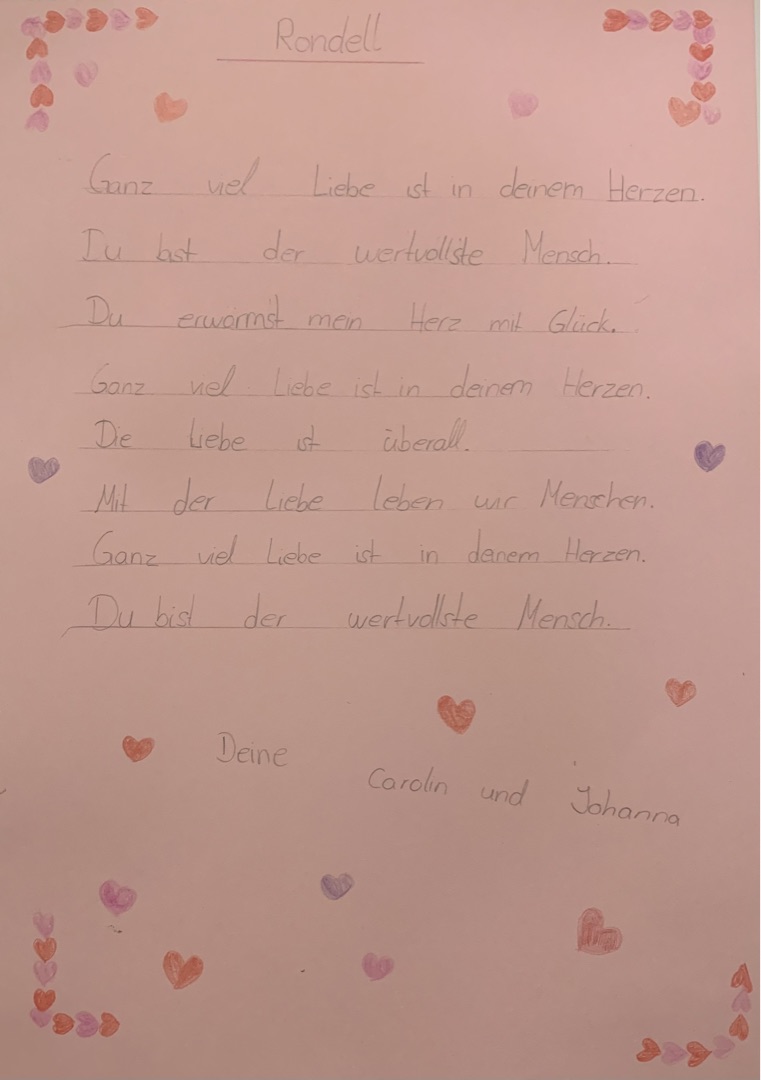 Rondell
Ganz viel Liebe ist in deinem Herzen.
Du bist der wertvollste Mensch.
Du erwärmst mein Herz mit Glück.
Ganz viel Liebe ist in deinem Herzen.
Die Liebe ist überall.
Mit der Liebe leben wir Menschen.
Ganz viel Liebe ist in deinem Herzen.
Du bist der wertvollste Mensch.
Deine
Carolin und Johanna